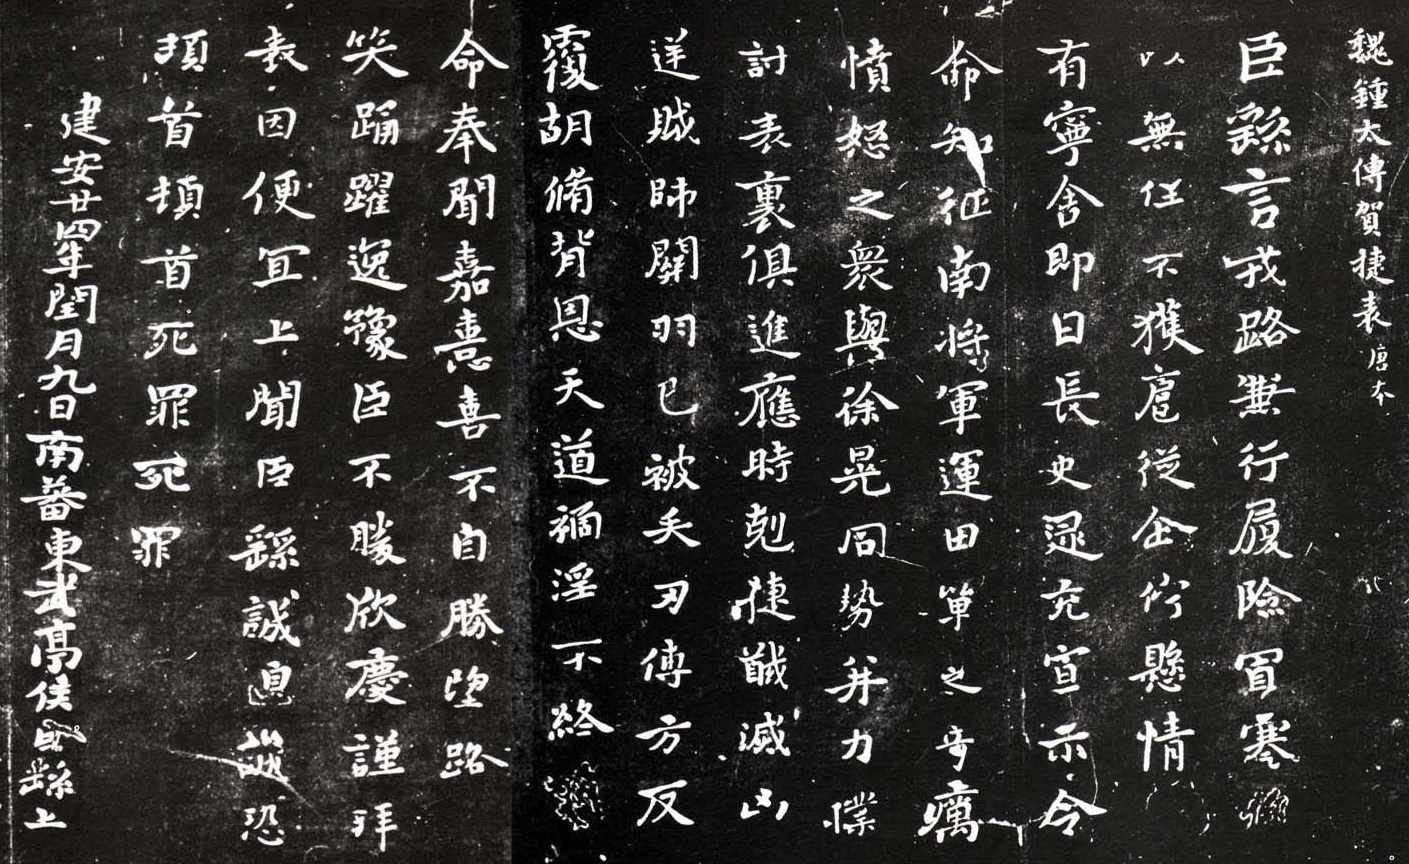 魏鍾太傅賀捷表 唐本
臣繇言戎路兼行履險冒寒
以無任不獲扈從企佇懸情
有寧舍即日長史逯充宣示令
命知征南將軍運田單之奇厲
憤怒之眾與徐晃同勢并力撲
討表裏俱進應時剋捷馘滅凶
逆賊帥關羽已被矢刃傅方反
覆胡脩背恩天道禍淫不終
命奉聞嘉憙喜不自勝望路
笑踊躍逸豫臣不勝欣慶謹拜
表因便宜上聞臣繇誠皇誠恐
頓首頓首死罪死罪
建安廿四年閏月九日南蕃東武亭侯臣繇上